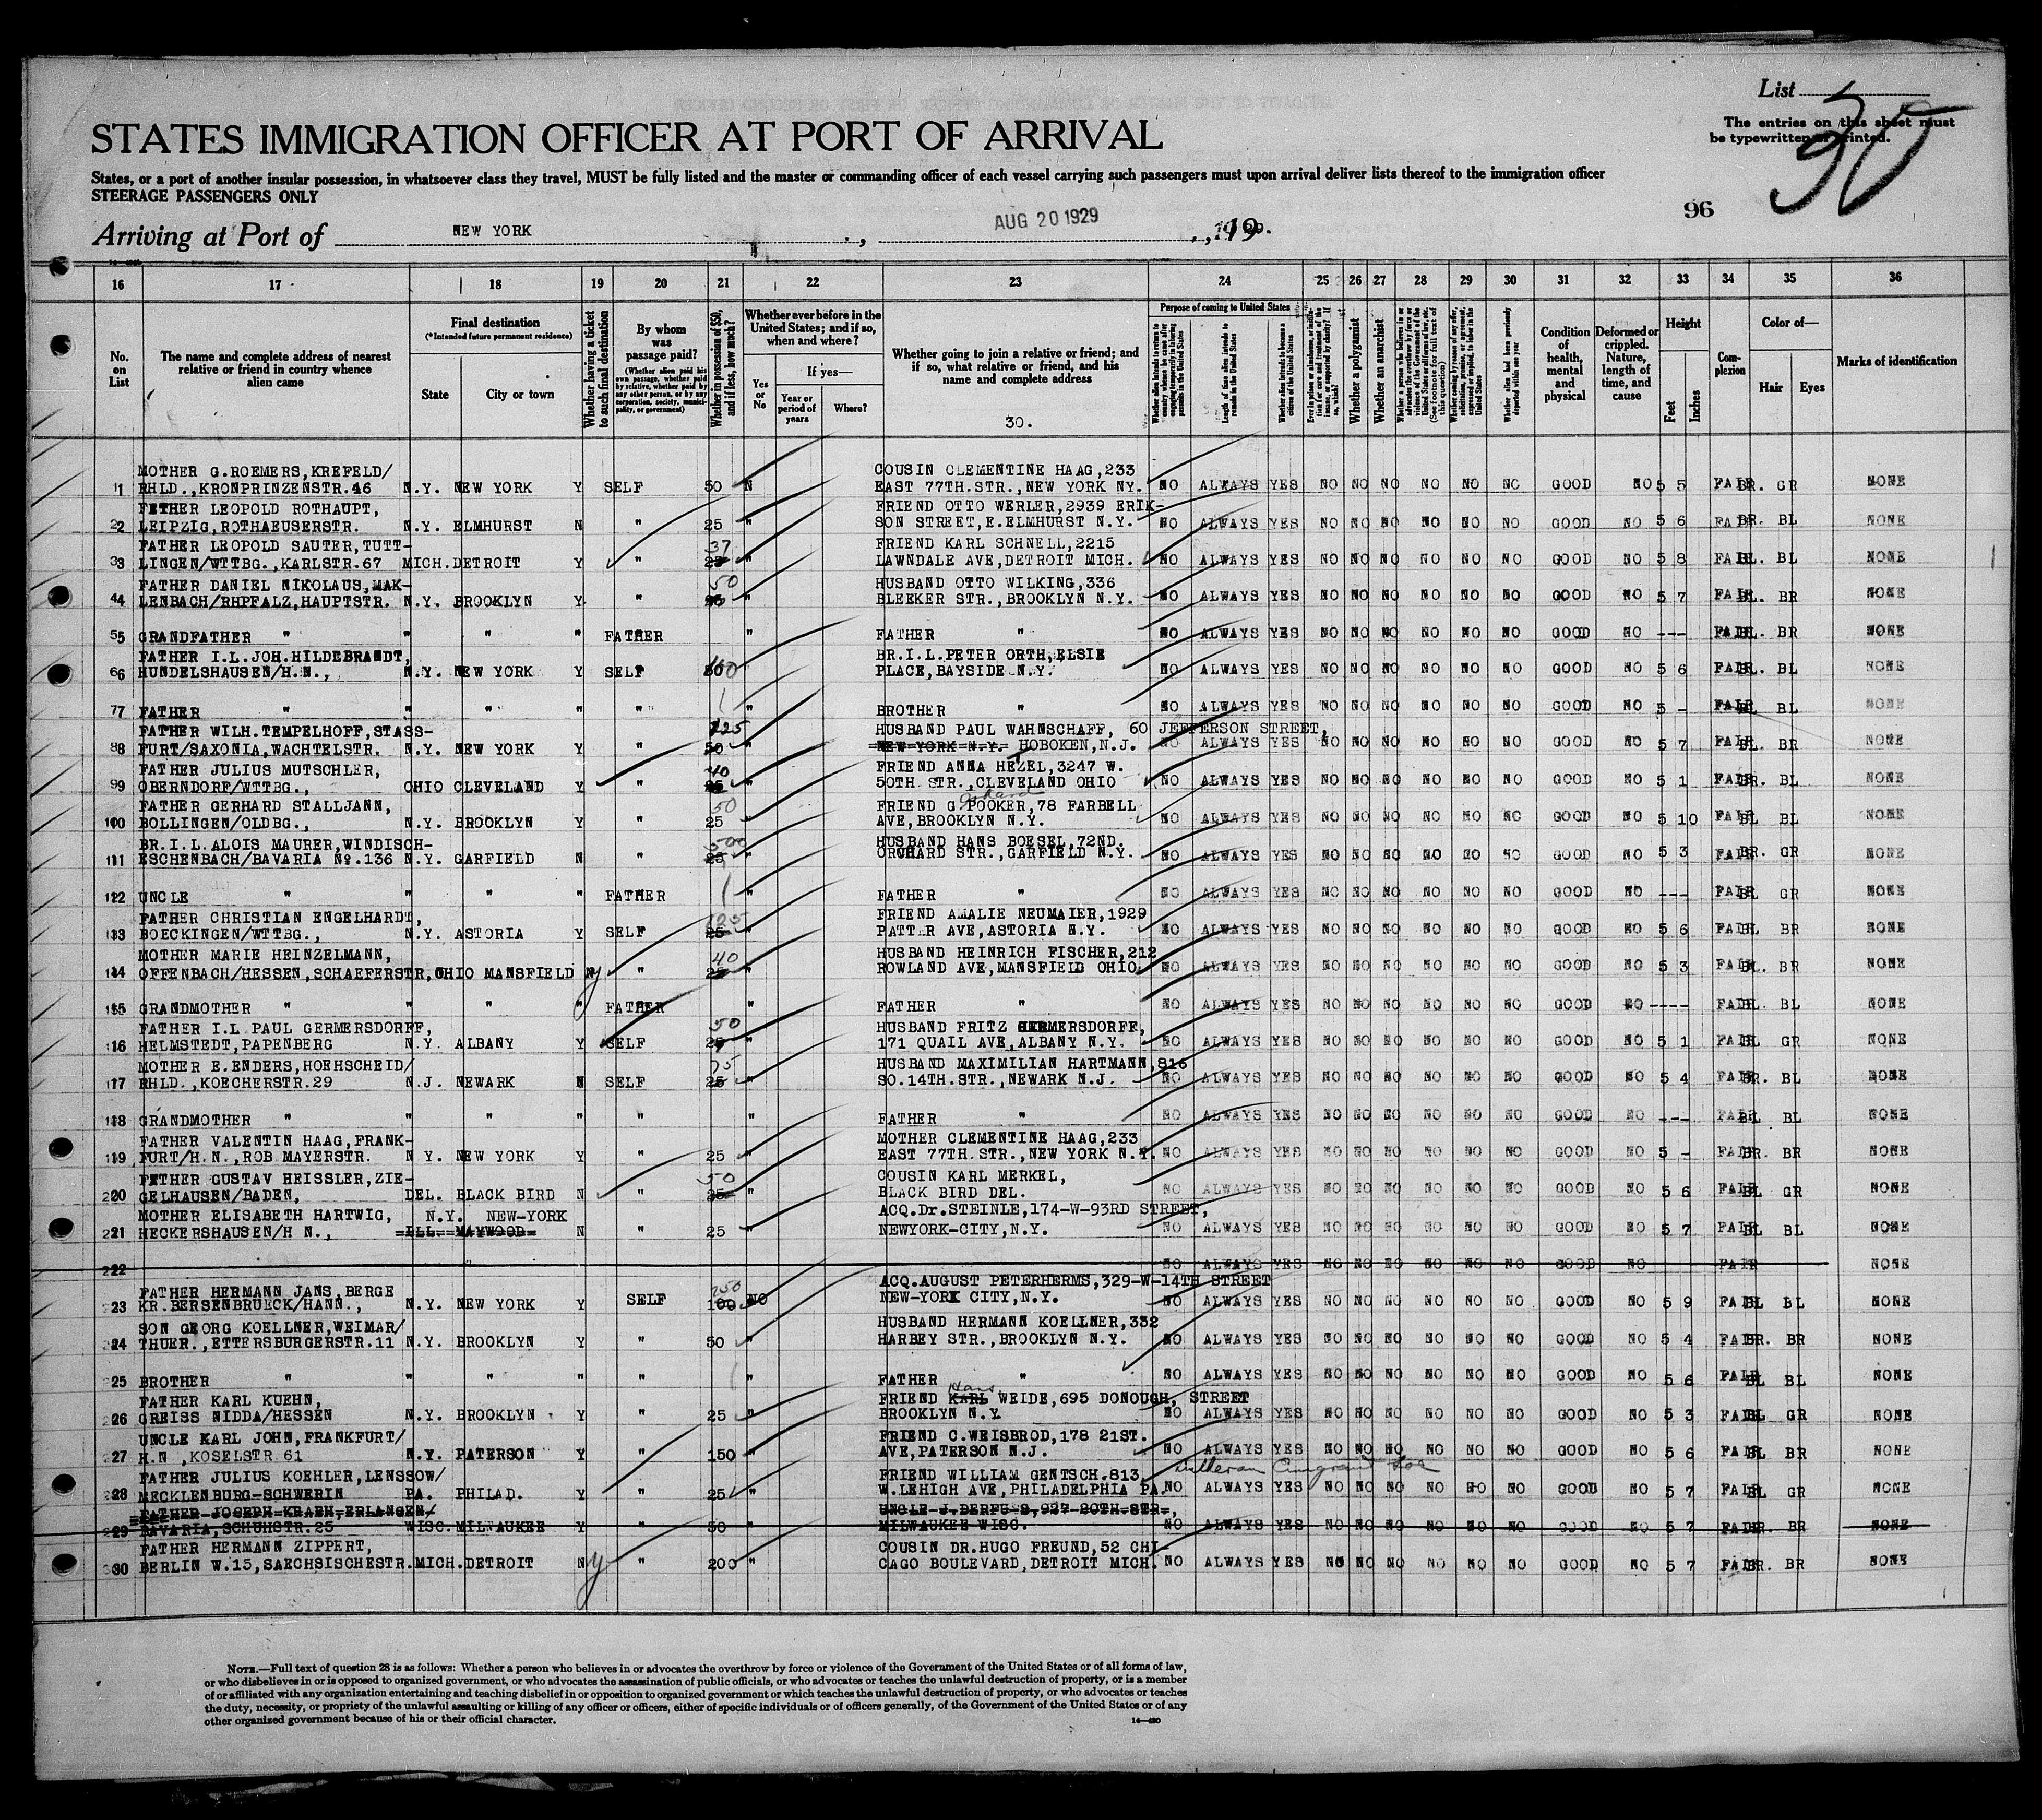 List
30
The entries on this sheet must
be typewritten or printed.
STATES IMMIGRATION OFFICER AT PORT OF ARRIVAL
States, or a port of another insular possession, in whatsoever class they travel, MUST be fully listed and the master or commanding officer of each vessel carrying such passengers must upon arrival deliver lists thereof to the immigration officer
STEERAGE PASSENGERS ONLY
96
Arriving at Port of NEW YORK, AUG 20 1929, 19
16 17 18 19 20 21 22 23 24 25 26 27 28 29 30 31 32 33 34 35 36
No. on List
The name and complete address of nearest relative or friend in country whence alien came
Final destination
(*Intended future permanent residence)
State
City or town
Whether having a ticket to such final destination
By whom was passage paid?
(Whether alien paid his own passage, whether paid by relative, whether paid by any other person, or by any corporation, society, municipality, or government)
Whether in possession of $50, and if less, how much?
Whether ever before in the United States; and if so, when and where?
Yes or No
If yes—
Year or period of years
Where?
Whether going to join a relative or friend; and if so, what relative or friend, and his name and complete address
30.
Purpose of coming to United States
Whether a polygamist
Whether an anarchist
Condition of health, mental and physical
Deformed or crippled. Nature, length of time, and cause
Height
Feet
Inches
Complexion
Color of—
Hair
Eyes
Marks of identification
MOTHER G.ROEMERS,KREFELD/ COUSIN CLEMENTINE HAAG,233
1 RHLD.,KRONPRINZENSTR.46 N.Y. NEW YORK Y SELF 50 N EAST 77TH.STR.,NEW YORK NY. NO ALWAYS YES NO NO NO NO NO NO GOOD NO 5 5 FAIR BR. GR NONE
FATHER LEOPOLD ROTHAUPT, FRIEND OTTO WERLER,2939 ERIK-
2 LEIPZIG,ROTHAEUSERSTR. N.Y. ELMHURST N " 25 " SON STREET,E.ELMHURST N.Y. NO ALWAYS YES NO NO NO NO NO NO GOOD NO 5 6 FAIR BR. BL NONE
FATHER LEOPOLD SAUTER,TUTT- 37 FRIEND KARL SCHNELL,2215
3 LINGEN/WTTBG.,KARLSTR.67 MICH.DETROIT Y " 25 " LAWNDALE AVE,DETROIT MICH. NO ALWAYS YES NO NO NO NO NO NO GOOD NO 5 8 FAIR BL. BL NONE
FATHER DANIEL NIKOLAUS,MAK- 50 HUSBAND OTTO WILKING,336
4 LENBACH/RHPFALZ,HAUPTSTR. N.Y. BROOKLYN Y " " BLEEKER STR.,BROOKLYN N.Y. NO ALWAYS YES NO NO NO NO NO NO GOOD NO 5 7 FAIR BL. BR NONE
5 GRANDFATHER " " " " FATHER " FATHER " NO ALWAYS YES NO NO NO NO NO NO GOOD NO --- FAIR BL. BR NONE
FATHER I.L.JOH.HILDEBRANDT, BR.I.L.PETER ORTH,ELSIE
6 HUNDELSHAUSEN/H.N., N.Y. NEW YORK Y SELF 100 " PLACE,BAYSIDE N.Y. NO ALWAYS YES NO NO NO NO NO NO GOOD NO 5 6 FAIR BR. BL NONE
7 FATHER " " " " " " BROTHER " NO ALWAYS YES NO NO NO NO NO NO GOOD NO 5 - FAIR BL NONE
FATHER WILH.TEMPELHOFF,STASS- 125 HUSBAND PAUL WAHNSCHAFF, 60 JEFFERSON STREET,
8 FURT/SAXONIA,WACHTELSTR. N.Y. NEW YORK Y " 50 " NEW YORK N.Y. HOBOKEN,N.J. NO ALWAYS YES NO NO NO NO NO NO GOOD NO 5 7 FAIR BL. BR NONE
FATHER JULIUS MUTSCHLER, 40 FRIEND ANNA HEZEL,3247 W.
9 OBERNDORF/WTTBG., OHIO CLEVELAND Y " 25 " 50TH STR.,CLEVELAND OHIO NO ALWAYS YES NO NO NO NO NO NO GOOD NO 5 1 FAIR BR. BL NONE
FATHER GERHARD STALLJANN, 50 FRIEND G.POOKER,78 FARBELL
10 BOLLINGEN/OLDBG., N.Y. BROOKLYN Y " 25 " AVE,BROOKLYN N.Y. NO ALWAYS YES NO NO NO NO NO NO GOOD NO 5 10 FAIR BL BL NONE
BR.I.L.ALOIS MAURER,WINDISCH- 500 HUSBAND HANS BOESEL,72ND.
11 ESCHENBACH/BAVARIA No.136 N.Y. GARFIELD N " 25 " ORCHARD STR.,GARFIELD N.Y. NO ALWAYS YES NO NO NO NO NO NO GOOD NO 5 3 FAIR BR. GR NONE
12 UNCLE " " " " FATHER " FATHER " NO ALWAYS YES NO NO NO NO NO NO GOOD NO --- FAIR BL GR NONE
FATHER CHRISTIAN ENGELHARDT, 125 FRIEND AMALIE NEUMAIER,1929
13 BOECKINGEN/WTTBG., N.Y. ASTORIA Y SELF 25 " PATTER AVE,ASTORIA N.Y. NO ALWAYS YES NO NO NO NO NO NO GOOD NO 5 6 FAIR BL BR NONE
MOTHER MARIE HEINZELMANN, 40 HUSBAND HEINRICH FISCHER,212
14 OFFENBACH/HESSEN,SCHAEFERSTR,OHIO MANSFIELD N y " 25 " ROWLAND AVE,MANSFIELD OHIO. NO ALWAYS YES NO NO NO NO NO NO GOOD NO 5 3 FAIR BL. BR NONE
15 GRANDMOTHER " " " " FATHER FATHER " NO ALWAYS YES NO NO NO NO NO NO GOOD NO ---- FAIR BL. BL NONE
FATHER I.L PAUL GERMERSDORFF, 50 HUSBAND FRITZ GERMERSDORFF,
16 HELMSTEDT,PAPENBERG N.Y. ALBANY Y SELF 25 " 171 QUAIL AVE,ALBANY N.Y. NO ALWAYS YES NO NO NO NO NO NO GOOD NO 5 1 FAIR BL GR NONE
MOTHER E.ENDERS,HOEHSCHEID/ 75 HUSBAND MAXIMILIAN HARTMANN,816
17 RHLD.,KOECHERSTR.29 N.J. NEWARK N SELF 25 " SO.14TH.STR.,NEWARK N.J. NO ALWAYS YES NO NO NO NO NO NO GOOD NO 5 4 FAIR BR. BL NONE
18 GRANDMOTHER " " " " " " FATHER " NO ALWAYS YES NO NO NO NO NO NO GOOD NO --- FAIR BL BL NONE
FATHER VALENTIN HAAG,FRANK- MOTHER CLEMENTINE HAAG,233
19 FURT/H.N.,ROB MAYERSTR. N Y. NEW YORK Y " 25 " EAST 77TH.STR.,NEW YORK N.Y. NO ALWAYS YES NO NO NO NO NO NO GOOD NO 5 - FAIR BR. BR NONE
FATHER GUSTAV HEISSLER,ZIE- 50 COUSIN KARL MERKEL,
20 GELHAUSEN/BADEN, DEL. BLACK BIRD N " 25 " BLACK BIRD DEL. NO ALWAYS YES NO NO NO NO NO NO GOOD NO 5 6 FAIR BL GR NONE
MOTHER ELISABETH HARTWIG, N.Y. NEW-YORK ACQ.Dr.STEINLE,174-W-93RD STREET,
21 HECKERSHAUSEN/H N., ILL. MAYWOOD N " 25 " NEWYORK-CITY,N.Y. NO ALWAYS YES NO NO NO NO NO NO GOOD NO 5 7 FAIR BL. BL NONE
22 NO ALWAYS YES NO NO NO NO NO NO GOOD NO FAIR NONE
FATHER HERMANN JANS,BERGE 250 ACQ.AUGUST PETERHERMS,329-W-14TH STREET
23 KR.BERSENBRUECK/HANN., N.Y. NEW YORK Y SELF 100 NO NEW-YORK CITY,N.Y. NO ALWAYS YES NO NO NO NO NO NO GOOD NO 5 9 FAIR BL BL NONE
SON GEORG KOELLNER,WEIMAR/ HUSBAND HERMANN KOELLNER,332
24 THUER.,ETTERSBURGERSTR.11 N.Y. BROOKLYN Y " 50 " HARBEY STR.,BROOKLYN N.Y. NO ALWAYS YES NO NO NO NO NO NO GOOD NO 5 4 FAIR BR. BR NONE
25 BROTHER " " " " " " FATHER " NO ALWAYS YES NO NO NO NO NO NO GOOD NO 5 6 FAIR BL BL NONE
FATHER KARL KUEHN, FRIEND KARL Hans WEIDE,695 DONOUGH, STREET
26 GREISS NIDDA/HESSEN N.Y. BROOKLYN Y " 25 " BROOKLYN N.Y. NO ALWAYS YES NO NO NO NO NO NO GOOD NO 5 3 FAIR BL GR NONE
UNCLE KARL JOHN,FRANKFURT/ FRIEND C.WEISBROD,178 21ST.
27 H.N ,KOSELSTR 61 N.Y. PATERSON Y " 150 " AVE,PATERSON N.J. NO ALWAYS YES NO NO NO NO NO NO GOOD NO 5 6 FAIR BL BR NONE
FATHER JULIUS KOEHLER,LENSSOW/ FRIEND WILLIAM GENTSCH.813 Lutheran Emigrant Soc
28 MECKLENBURG-SCHWERIN PA. PHILAD. Y " 25 " W.LEHIGH AVE,PHILADELPHIA PA. NO ALWAYS YES NO NO NO NO NO NO GOOD NO 5 7 FAIR BL GR NONE
FATHER JOSEPH KRAEH,ERLANGEN/ 927 20TH STR.,
29 BAVARIA,SCHUHSTR.25 WISC.MILWAUKEE Y " 50 " MILWAUKEE WISC. NO ALWAYS YES NO NO NO NO NO NO GOOD NO 5 7 FAIR BR. BR NONE
FATHER HERMANN ZIPPERT, COUSIN DR.HUGO FREUND,52 CHI-
30 BERLIN W.15,SAECHSISCHESTR.MICH.DETROIT N y " 200 " CAGO BOULEVARD,DETROIT MICH. NO ALWAYS YES NO NO NO NO NO NO GOOD NO 5 7 FAIR BR. BR NONE
NOTE.—Full text of question 28 is as follows: Whether a person who believes in or advocates the overthrow by force or violence of the Government of the United States or of all forms of law,
or who disbelieves in or is opposed to organized government, or who advocates the assassination of public officials, or who advocates or teaches the unlawful destruction of property, or is a member
of or affiliated with any organization entertaining and teaching disbelief in or opposition to organized government or which teaches the unlawful destruction of property, or who advocates or teaches
the duty, necessity, or propriety of the unlawful assaulting or killing of any officer or officers, either of specific individuals or of officers generally, of the Government of the United States or of any
other organized government because of his or their official character.
14—420